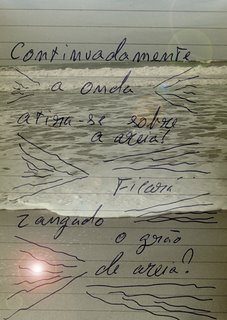 Continuadamente
a onda
atira-se sobre
a areia!
Ficará
zangado
o grão
de areia?